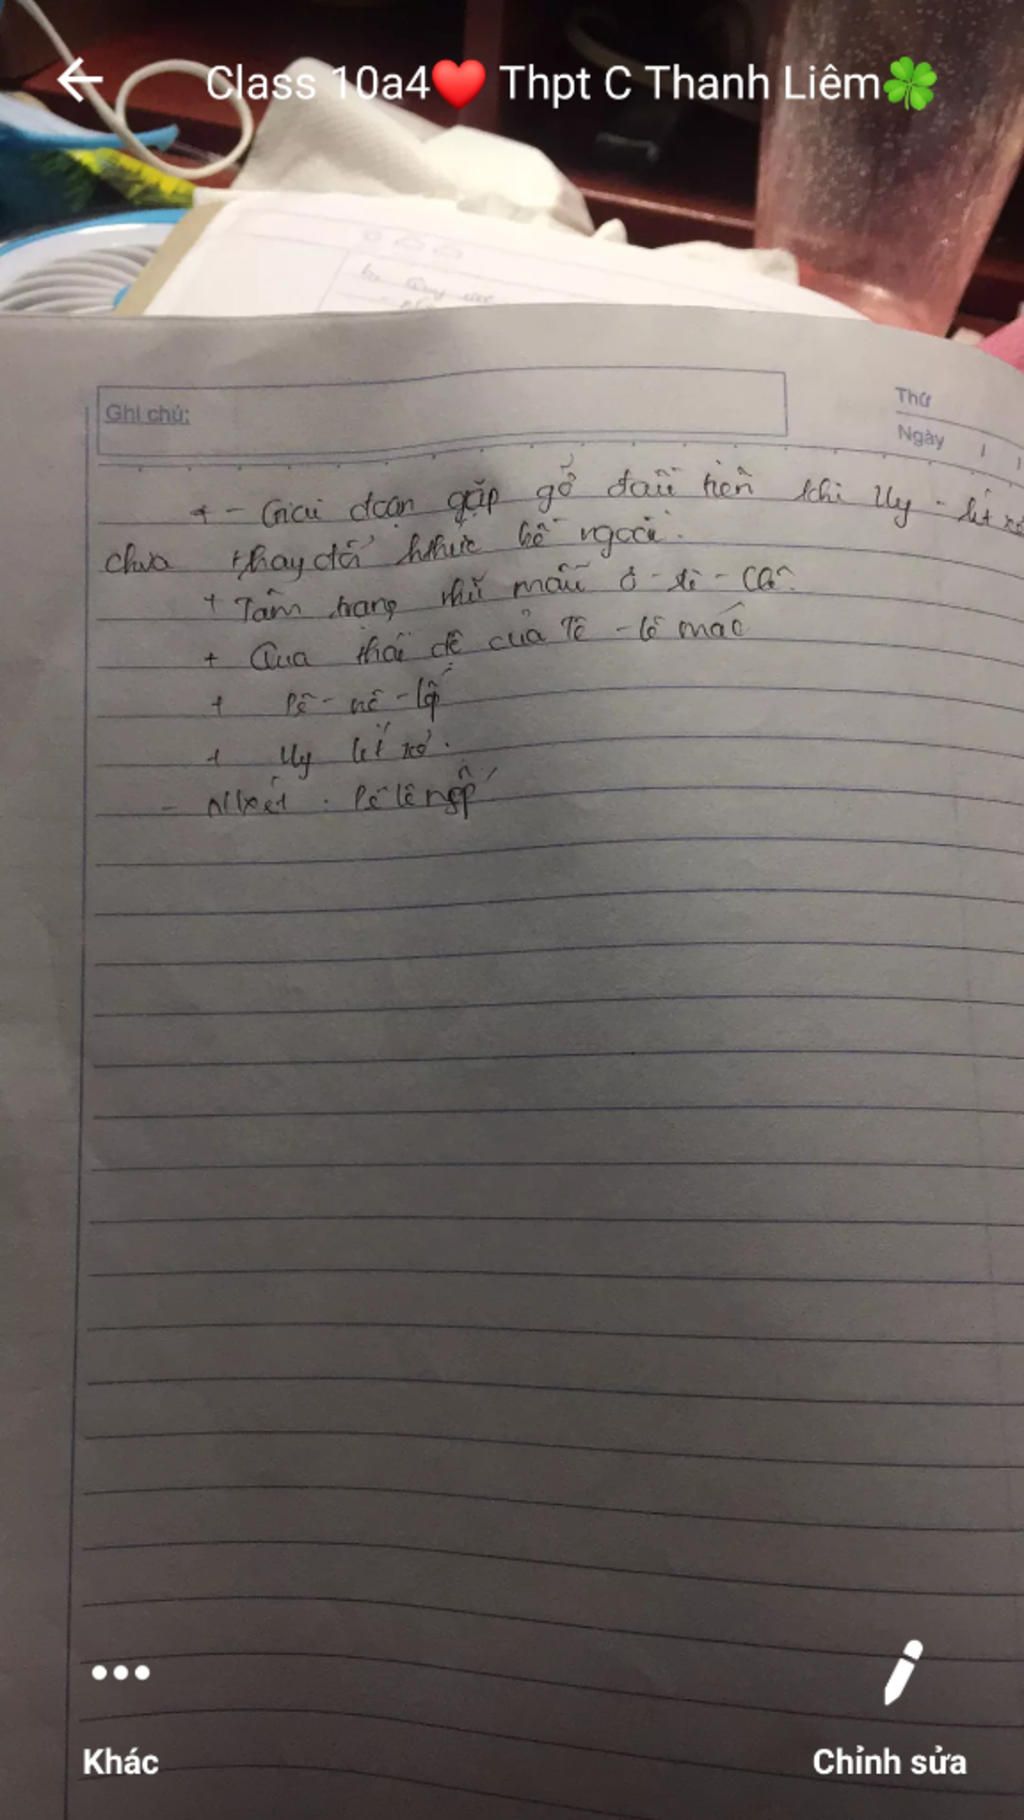 Class 10a4❤️ Thpt C Thanh Liêm🍀
Ghi chú:
Thứ
Ngày
+ - Giai đoạn gặp gỡ đầu tiên khi Uy - lít xơ
chưa thay đổi bề ngoài.
+ Tâm trạng nhũ mẫu Ơ - ri - Clê.
+ Qua thái độ của Tê - lê mác
+ Pê - nê - lốp
+ Uy lít xơ.
- N/xét : Pê lê ngốp
Khác
Chỉnh sửa